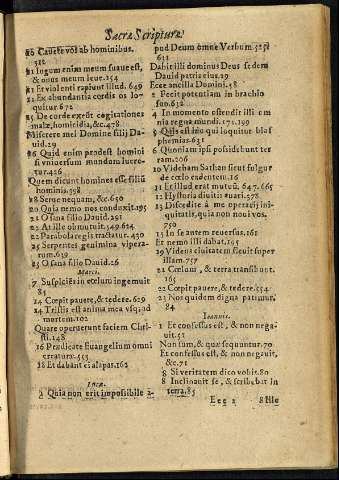 Sacræ Scripturæ
20 Cauete vol ab hominibus.
312
21 Iugum enim meum suaue est,
& onus meum leue.254
21 Et violenti rapiunt illud. 649
21 Ex abundantia cordis os lo
quitur.672
25 De corde exeũt cogitationes
malæ, homicidia,&c.478
Miserere mei Domine fili Da
uid.29
26 Quid enim prodest homini
si vniuersum mundum lucre
tur.426
Quem dicunt homines esse filiũ
hominis.598
28 Serue nequam, &c.650
20 Quia nemo nos conduxit.195
21 Osana filio Dauid.291
22 At ille obmutuit.549.624
22 Parabola regis tractatur.430
25 Serpentes genimina vipera-
rum.639
25 Osana filio Dauid.26
Marci.
7 Suspiciẽs in cœlum ingemuit
85
24 Cœpit pauere,& tedere.629
24 Tristis est anima mea vsq; ad
mortem.102
Quare operuerunt faciem Chri
sti.148
16 Prædicate Euangelium omni
creaturæ.553
18 Et dabant ei alapas.162
Lucæ.
2 Quia non erit impossibile a-
pud Deum omne Verbum.525
611
Dabit illi dominus Deus sedem
Dauid patris eius.29
Ecce ancilla Domini.58
2 Fecit potentiam in brachio
suo.612
4 In momento ostendit illi om
nia regna mundi.171.199
5 Quis est hic qui loquitur blas
phemias.631
6 Quoniam ipsi possidebunt ter
ram.206
10 Videbam Sathan sicut fulgur
de cœlo cadentem.16
11 Et illud erat mutuũ.647.665
12 Hystoria diuitis auari.578
13 Discedite à me operarij ini-
quitatis, quia non noui vos.
750
15 In se autem reuersus.161
Et nemo illi dabat.195
19 Videns ciuitatem fleuit super
illam.757
22 Cœlum, & terra transibunt.
165
22 Cœpit pauere,& tedere.
23 Nos quidem digna patimur.
84
Ioannis.
1 Et confessus est, & non nega-
uit.52
Non sum, & quæ sequuntur.70
Et confessus est, & non negauit,
&c.71
8 Si veritatem dico vobis.80
8 Inclinauit se, & scribebat in
terra.85
Eee 2 8 Ille